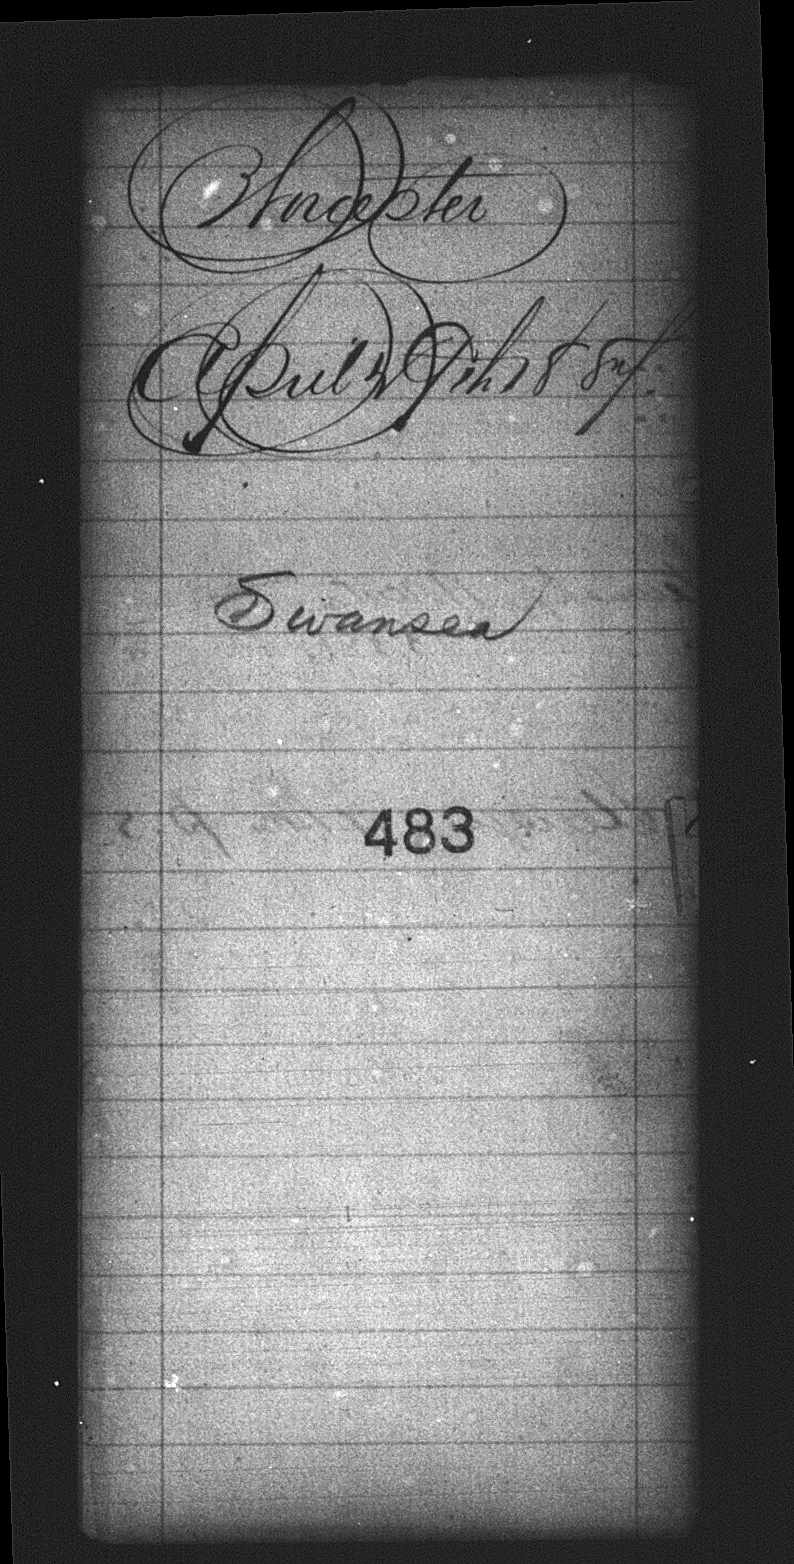 Worcester
April 7th 1887
Swansea
483